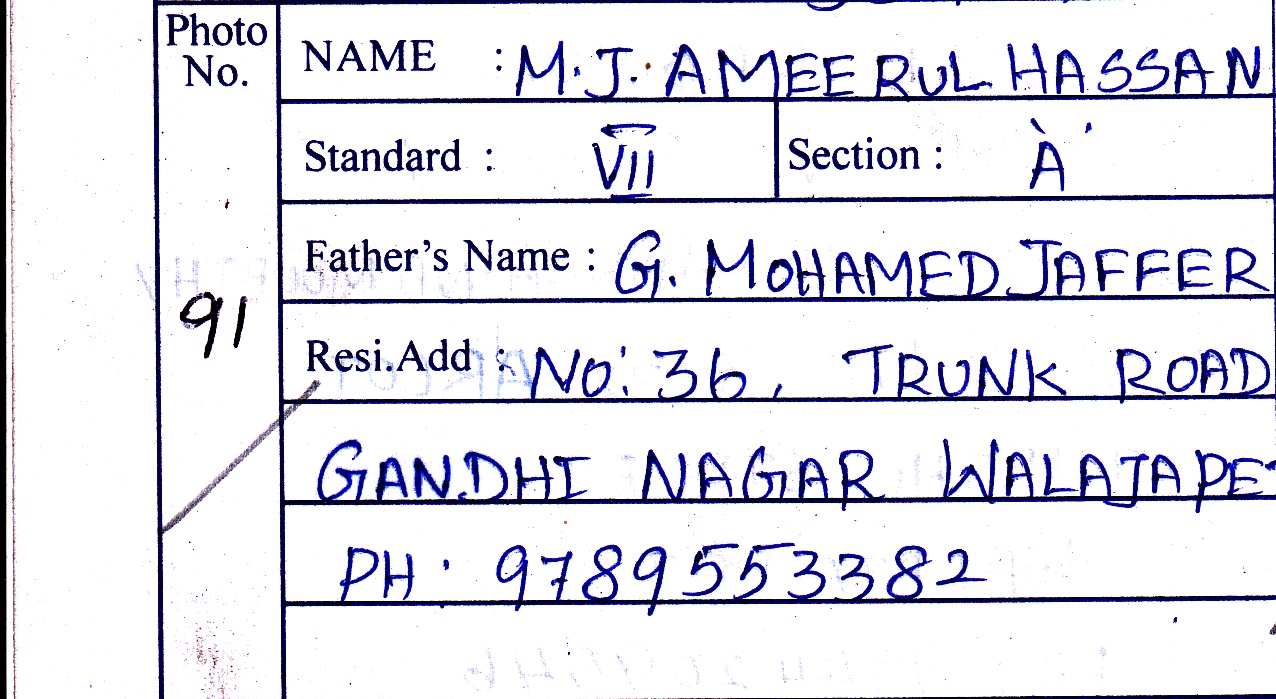 Photo No.
NAME : M.J. AMEERUL HASSAN
Standard : VII Section : 'A'
Father's Name : G. MOHAMED JAFFER
91
Resi.Add : NO: 36, TRUNK ROAD
GANDHI NAGAR WALAJAPE
PH: 9789553382